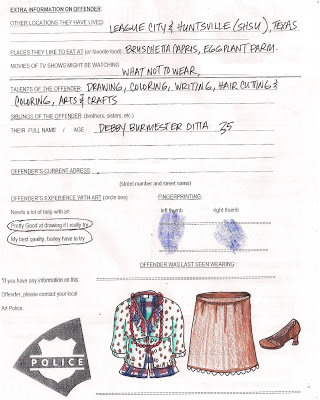 EXTRA INFORMATION ON OFFENDER:
OTHER LOCATIONS THEY HAVE LIVED: LEAGUE CITY & HUNTSVILLE (SHSU), TEXAS
PLACES THEY LIKE TO EAT AT (or favorite food): BRUSCHETTA CAPRIS, EGGPLANT PARM.
MOVIES OF TV SHOWS MIGHT BE WATCHING
WHAT NOT TO WEAR,
TALENTS OF THE OFFENDER: DRAWING, COLORING, WRITING, HAIR CUTTING &
COLORING, ARTS & CRAFTS
SIBLINGS OF THE OFFENDER: (brothers, sisters, etc.)
THEIR FULL NAME / AGE DEBBY BURMESTER DITTA 35
OFFENDER'S CURRENT ADRESS:
(street number and street name)
OFFENDER'S EXPERIENCE WITH ART (circle one)
FINGERPRINTING:
Needs a lot of help with art
left thumb right thumb
Pretty Good at drawing if I really try
My best quality, barley have to try
OFFENDER WAS LAST SEEN WEARING:
*If you have any information on this
Offender, please contact your local
Art Police.
POLICE